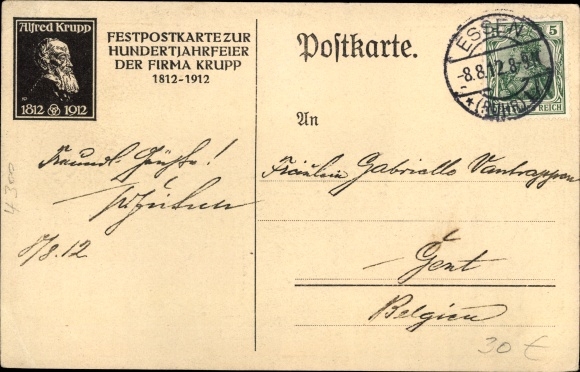 Alfred Krupp
1812 1912
FESTPOSTKARTE ZUR
HUNDERTJAHRFEIER
DER FIRMA KRUPP
1812-1912
Postkarte.
ESSEN
-8.8.12.8-9V
*(RUHR)
5
REICH
An
Freundl. Grüße!
8/8.12
Fräulein Gabriello Vantrappen
Gent
Belgien
4300
30 €